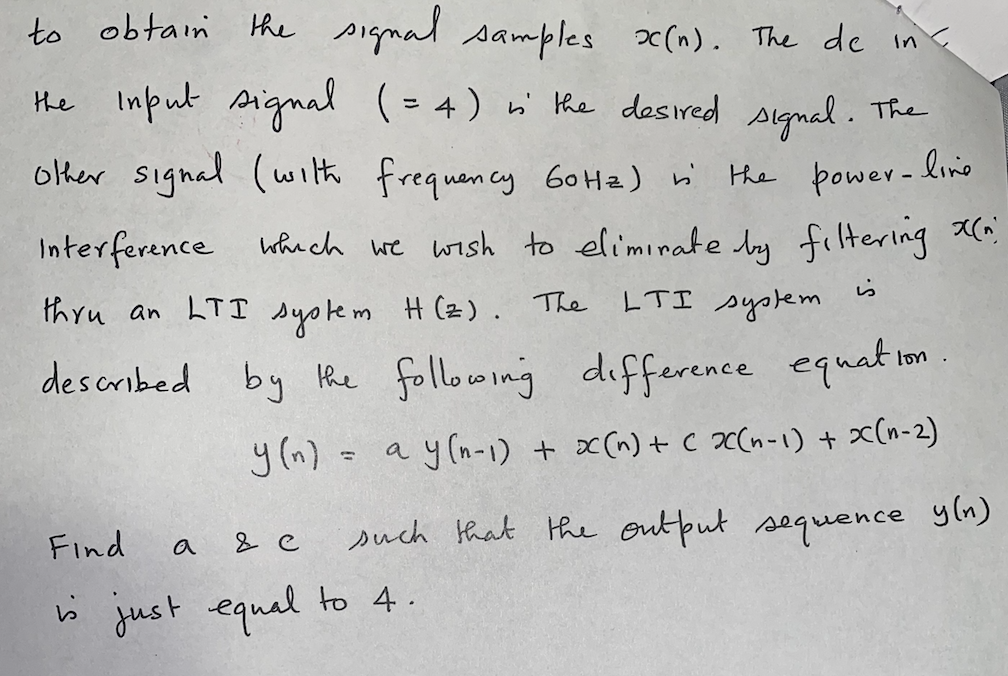 to obtain the signal samples x(n). The dc in
the input signal (= 4) is the desired signal. The
other signal (with frequency 60Hz) is the power-line
interference which we wish to eliminate by filtering x(n)
thru an LTI system H(z). The LTI system is
described by the following difference equation.
y(n) = a y(n-1) + x(n) + c x(n-1) + x(n-2)
Find a & c such that the output sequence y(n)
is just equal to 4.